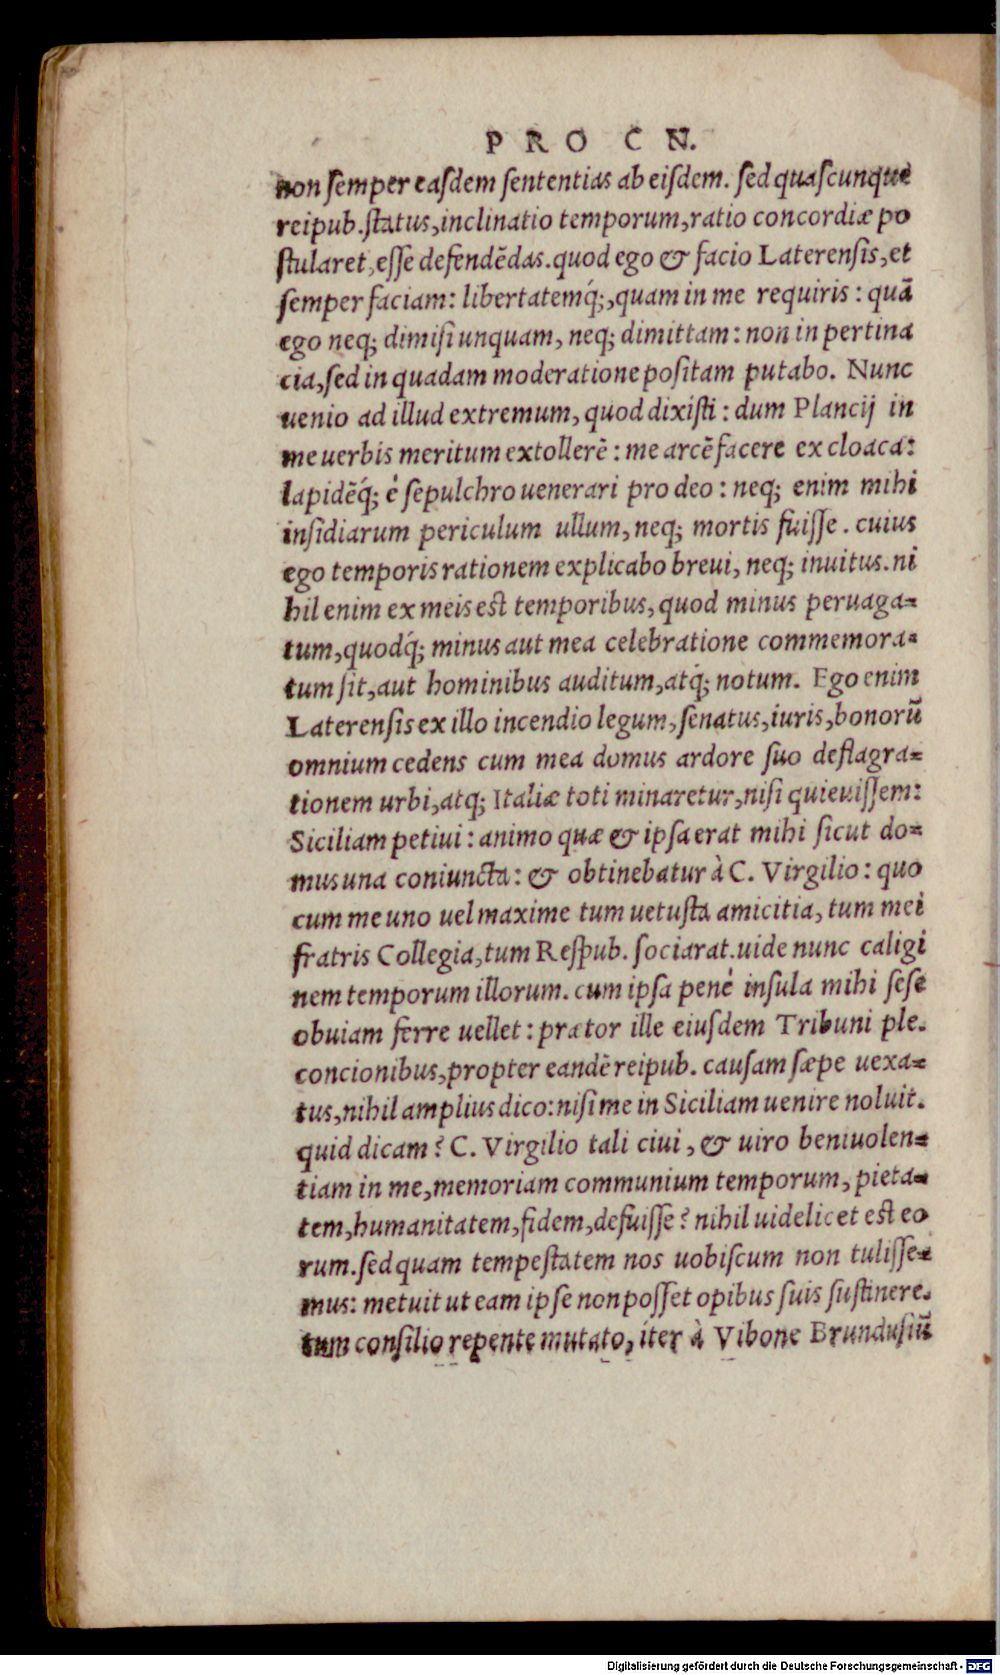 PRO CN.
non semper easdem sententias ab eisdem. sed quascunque
reipub. status, inclinatio temporum, ratio concordiæ po
stularet, esse defendẽdas. quod ego & facio Laterensis, et
semper faciam: libertatemq́;, quam in me requiris: quã
ego neq; dimisi unquam, neq; dimittam: non in pertina
cia, sed in quadam moderatione positam putabo. Nunc
uenio ad illud extremum, quod dixisti: dum Plancij in
me uerbis meritum extollerẽ: me arcẽ facere ex cloaca:
lapidẽq́; è sepulchro uenerari pro deo: neq; enim mihi
insidiarum periculum ullum, neq; mortis fuisse. cuius
ego temporis rationem explicabo breui, neq; inuitus. ni
hil enim ex meis est temporibus, quod minus peruaga=
tum, quodq́; minus aut mea celebratione commemora=
tum sit, aut hominibus auditum, atq́; notum. Ego enim
Laterensis ex illo incendio legum, senatus, iuris, bonorũ
omnium cedens cum mea domus ardore suo deflagra=
tionem urbi, atq; Italiæ toti minaretur, nisi quieuissem:
Siciliam petiui: animo quæ & ipsa erat mihi sicut do=
mus una coniuncta: & obtinebatur à C. Virgilio: quo
cum me uno uel maxime tum uetusta amicitia, tum mei
fratris Collegia, tum Respub. sociarat. uide nunc caligi
nem temporum illorum. cum ipsa penè insula mihi sese
obuiam ferre uellet: prætor ille eiusdem Tribuni ple.
concionibus, propter eandẽ reipub. causam sæpe uexa=
tus, nihil amplius dico: nisi me in Siciliam uenire noluit.
quid dicam? C. Virgilio tali ciui, & uiro beniuolen=
tiam in me, memoriam communium temporum, pieta=
tem, humanitatem, fidem, defuisse? nihil uidelicet est eo
rum. sed quam tempestatem nos uobiscum non tulisse=
mus: metuit ut eam ipse non posset opibus suis sustinere.
tum consilio repente mutato, iter à Vibone Brundusiũ
Digitalisierung gefördert durch die Deutsche Forschungsgemeinschaft - DFG